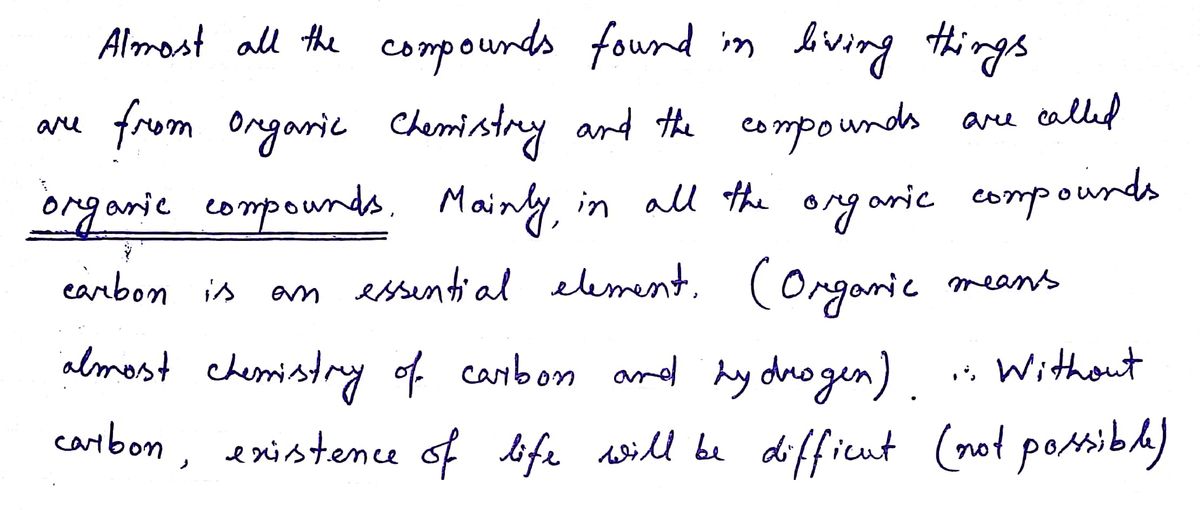 Almost all the compounds found in living things
are from Organic Chemistry and the compounds are called
organic compounds. Mainly, in all the organic compounds
carbon is an essential element. (Organic means
almost chemistry of carbon and hydrogen). ∴ Without
carbon, existence of life will be difficut (not possible)